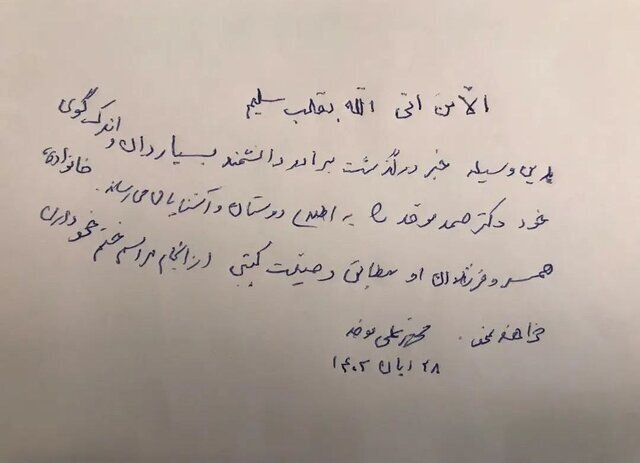 الّا من اتی الله بقلب سلیم
بدین وسیله خبر درگذشت برادر دانشمند بسیاردان و اندک‌گوی
خود دکتر صمد موحد را به اطلاع دوستان و آشنایان می‌رساند. خانواده،
همسر و فرزندان او مطابق وصیت کتبی از انجام مراسم ختم خودداری
خواهند نمود. محمدعلی موحد
۲۸ آبان ۱۴۰۲